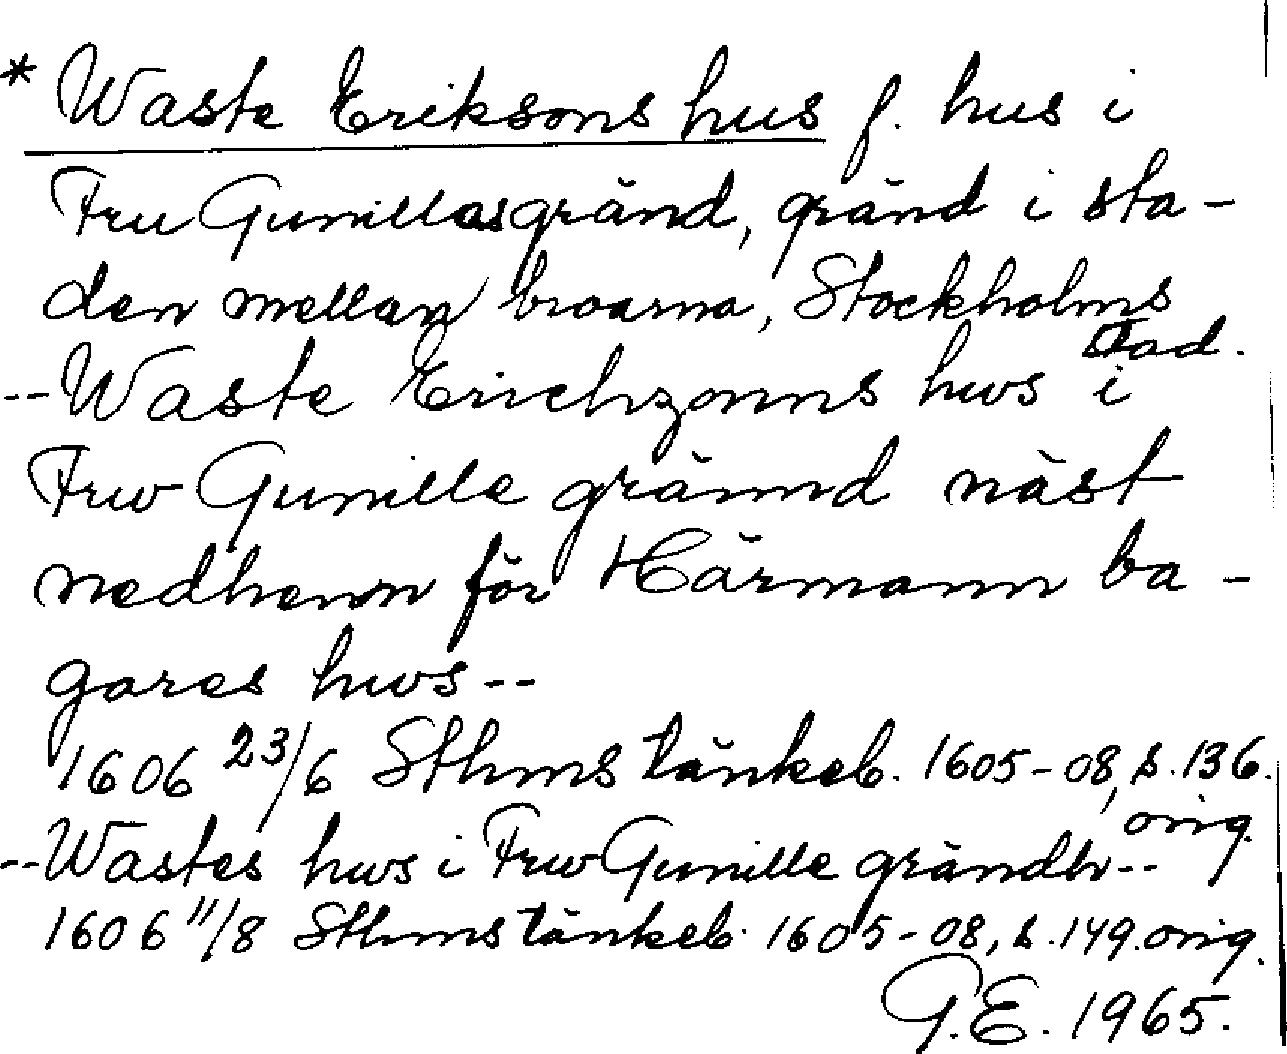 * Waste Eriksons hus f. hus i
Fru Gunillas gränd, gränd i sta-
den mellan broarna, Stockholms
stad.
-- Waste Erichzonns hws i
Frw Gunille grännd näst
nedhenn för Härmann ba-
gares hws --
1606 23/6 Sthms tänkeb. 1605-08, s. 136.
orig.
-- Wastes hws i Frw Gunille grändh --
1606 11/8 Sthms tänkeb. 1605-08, s. 149. orig.
G.E. 1965.